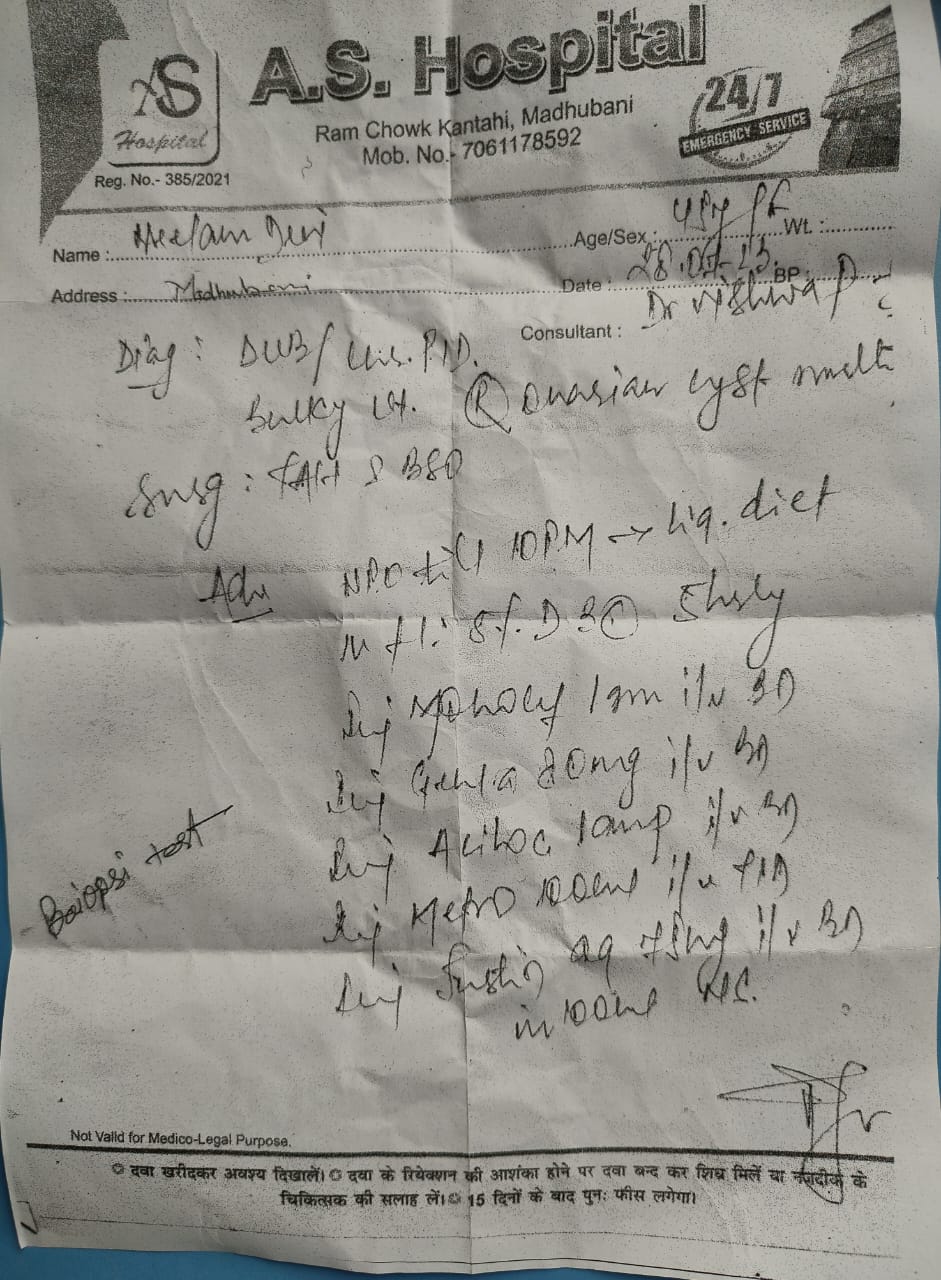 AS
Hospital
Reg. No.- 385/2021
A.S. Hospital
Ram Chowk Kantahi, Madhubani
Mob. No.- 7061178592
24/7
EMERGENCY SERVICE
Name : Neelam Devi
Age/Sex : 45y
Wt. :
Address : Madhubani
Date :
BP :
Consultant : Dr Vishwa
Diag : DUB/ PID.
Bulky ut. (R) ovarian cyst
Surg : TAH & BSO
Adv NPO till 10PM → liq. diet
5% D
Inj 1gm i/v BD
Inj Genta 80mg i/v BD
Inj Aciloc 1amp i/v BD
Inj Metro 100ml i/v
Inj aq 75mg i/v BD
in 100ml
Boiopsi test
Not Valid for Medico-Legal Purpose.
दवा खरीदकर अवश्य दिखालें। दवा के रियेक्शन की आशंका होने पर दवा बन्द कर शिघ्र मिलें या नजदीक के
चिकित्सक की सलाह लें। 15 दिनों के बाद पुनः फीस लगेगा।